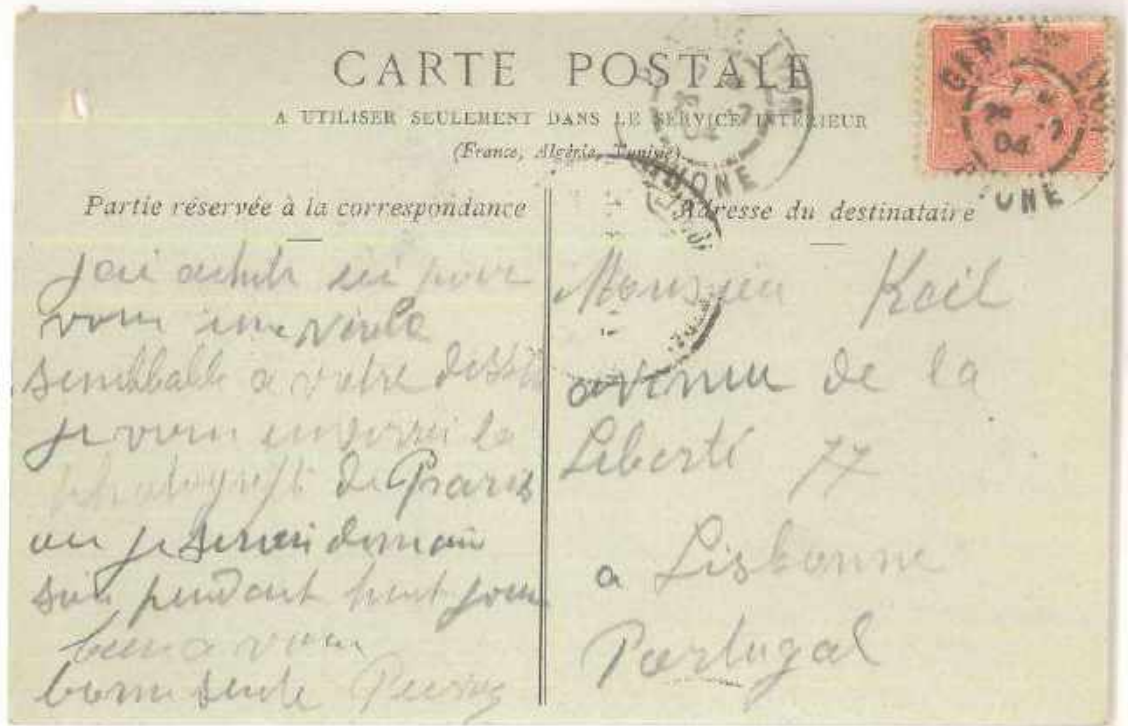 CARTE POSTALE
A UTILISER SEULEMENT DANS LE SERVICE INTÉRIEUR
(France, Algérie, Tunisie)
Partie réservée à la correspondance
j'ai acheté ici pour
vous une
semblable a votre
je vous enverrai la
de Paris
ou je serai demain
soir pendant huit jour
bien a vous
bonne sente
Adresse du destinataire
Monsieur Keil
avenue de la
Liberté 77
a Lisbonne
Portugal
GARE
RHONE
04